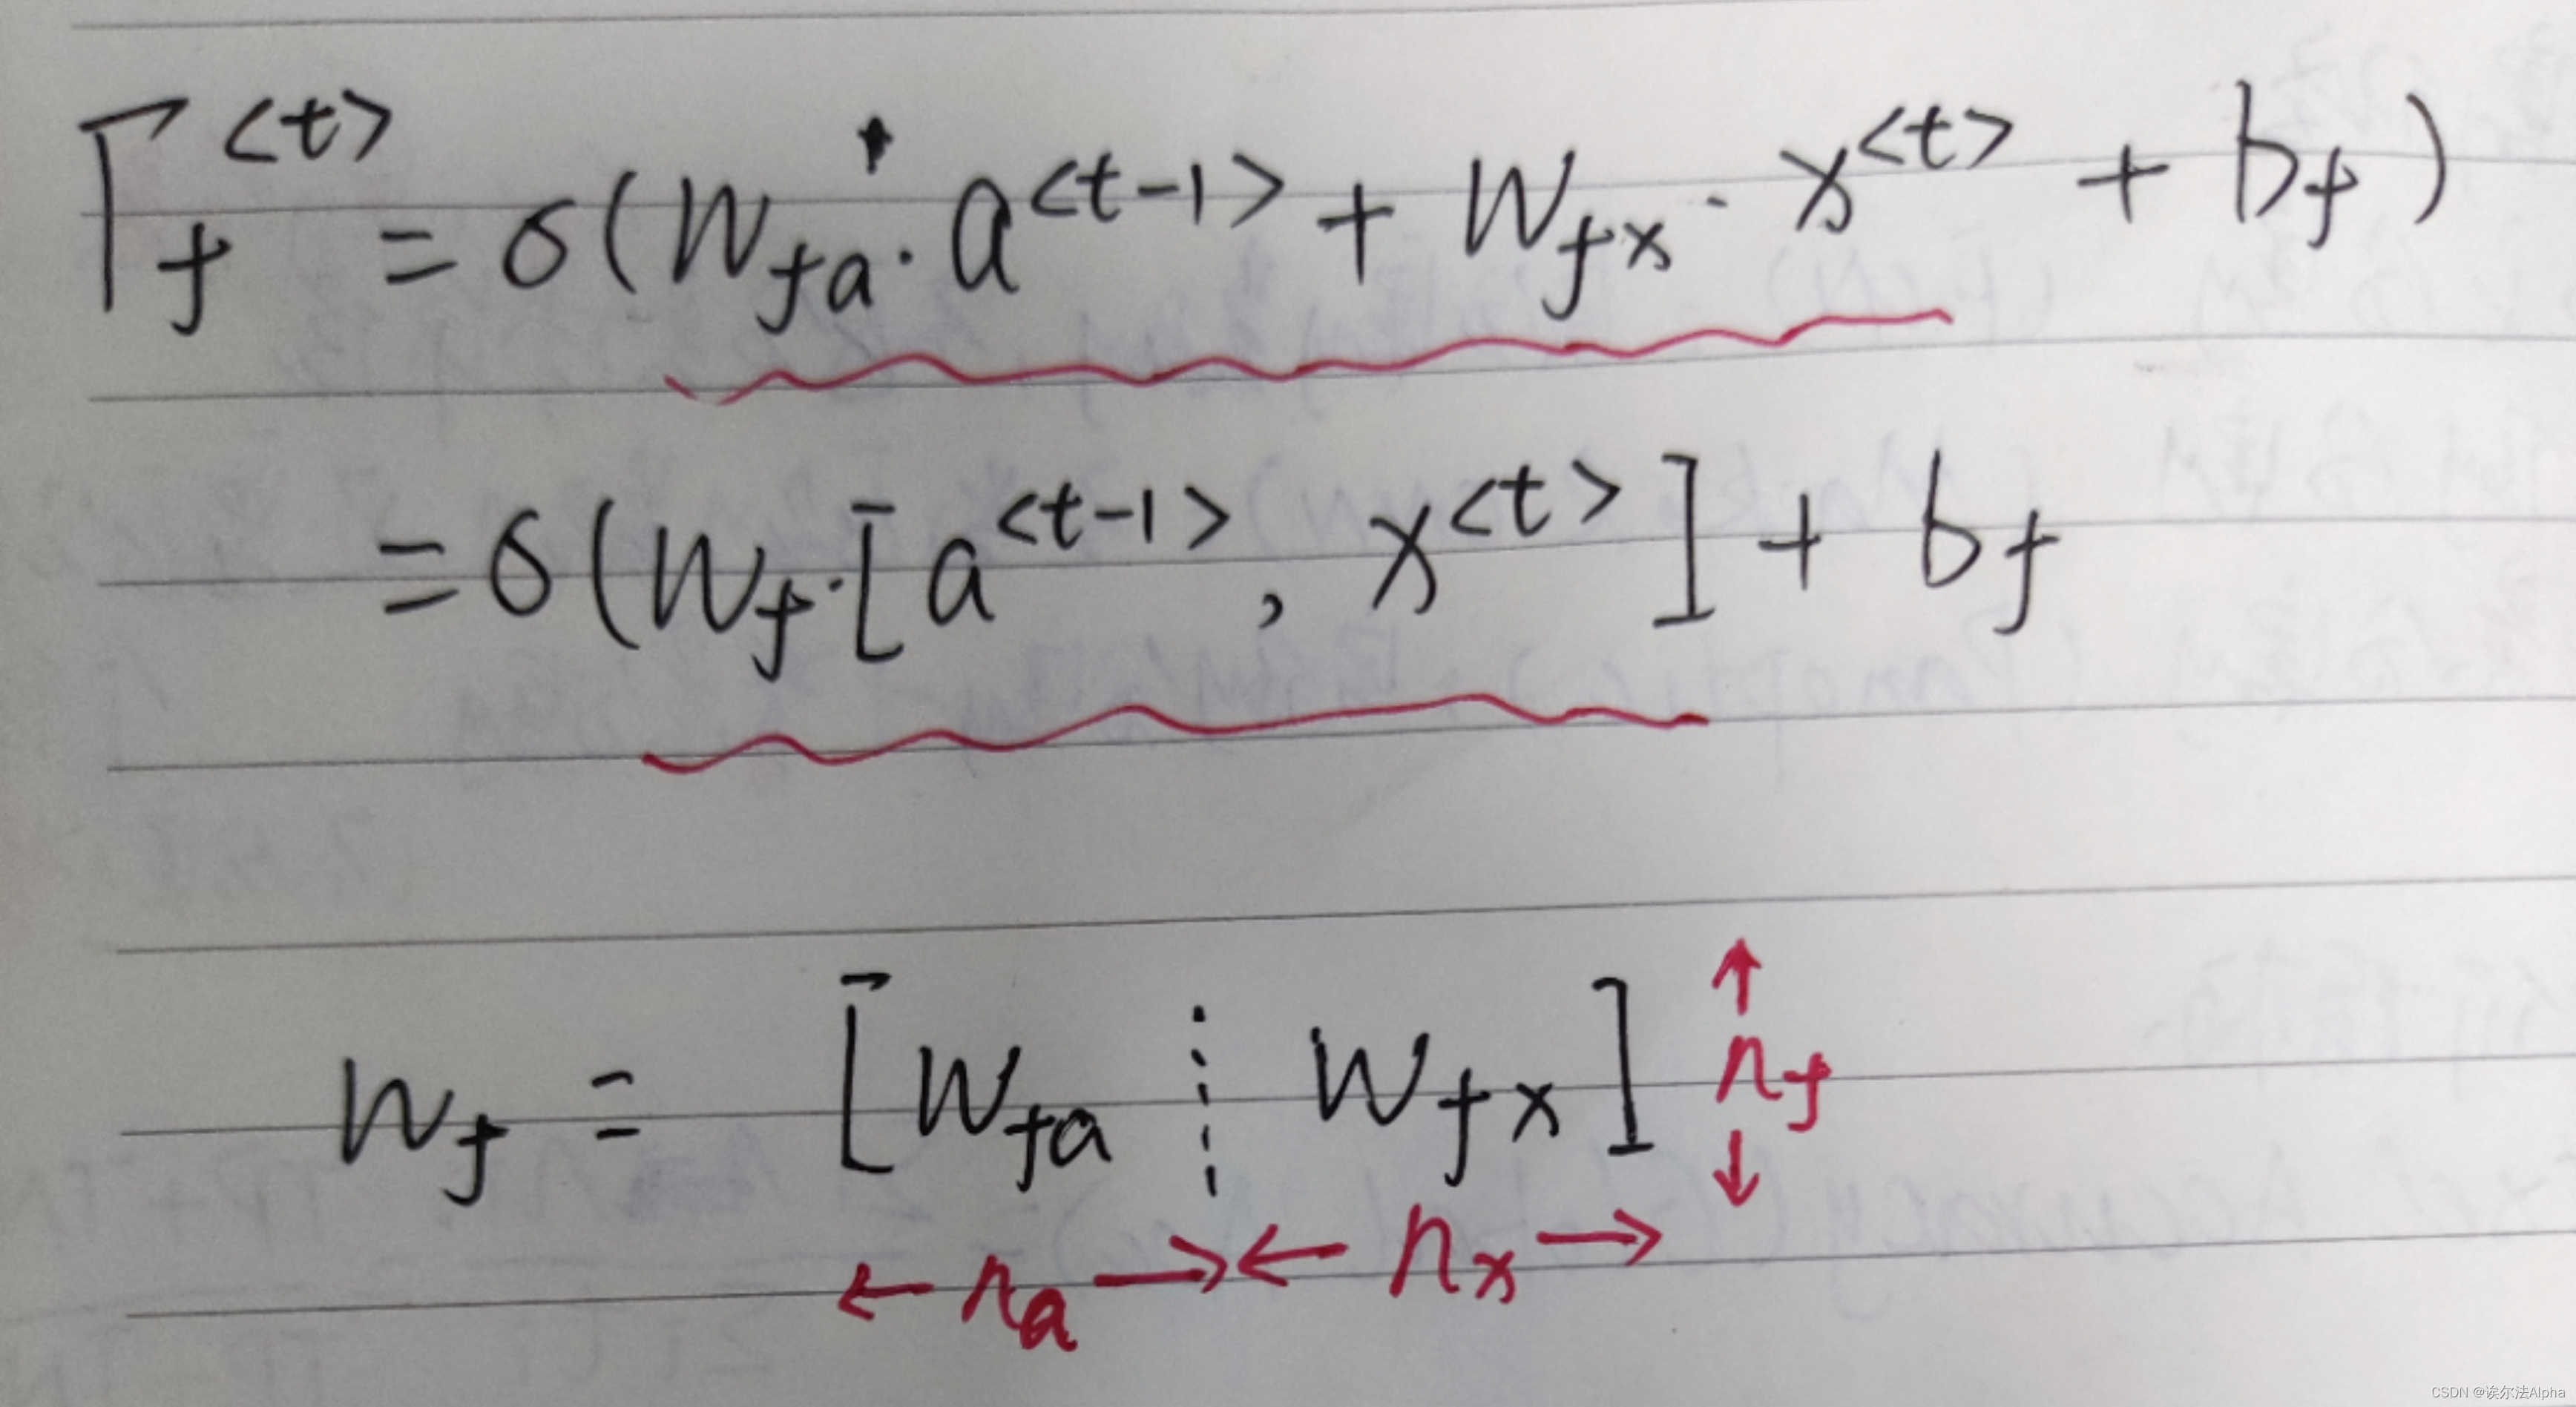 Γf<t> = σ(Wfa · a<t-1> + Wfx · x<t> + bf)
= σ(Wf · [a<t-1>, x<t>] + bf
Wf = [Wfa ⋮ Wfx] ↑ nf ↓
← na → ← nx →
CSDN @诶尔法Alpha